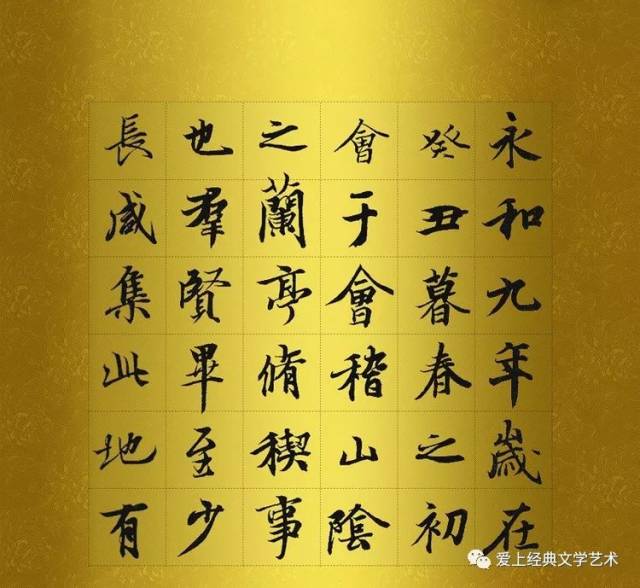 永和九年歲在
癸丑暮春之初
會于會稽山陰
之蘭亭脩禊事
也羣賢畢至少
長咸集此地有
爱上经典文学艺术